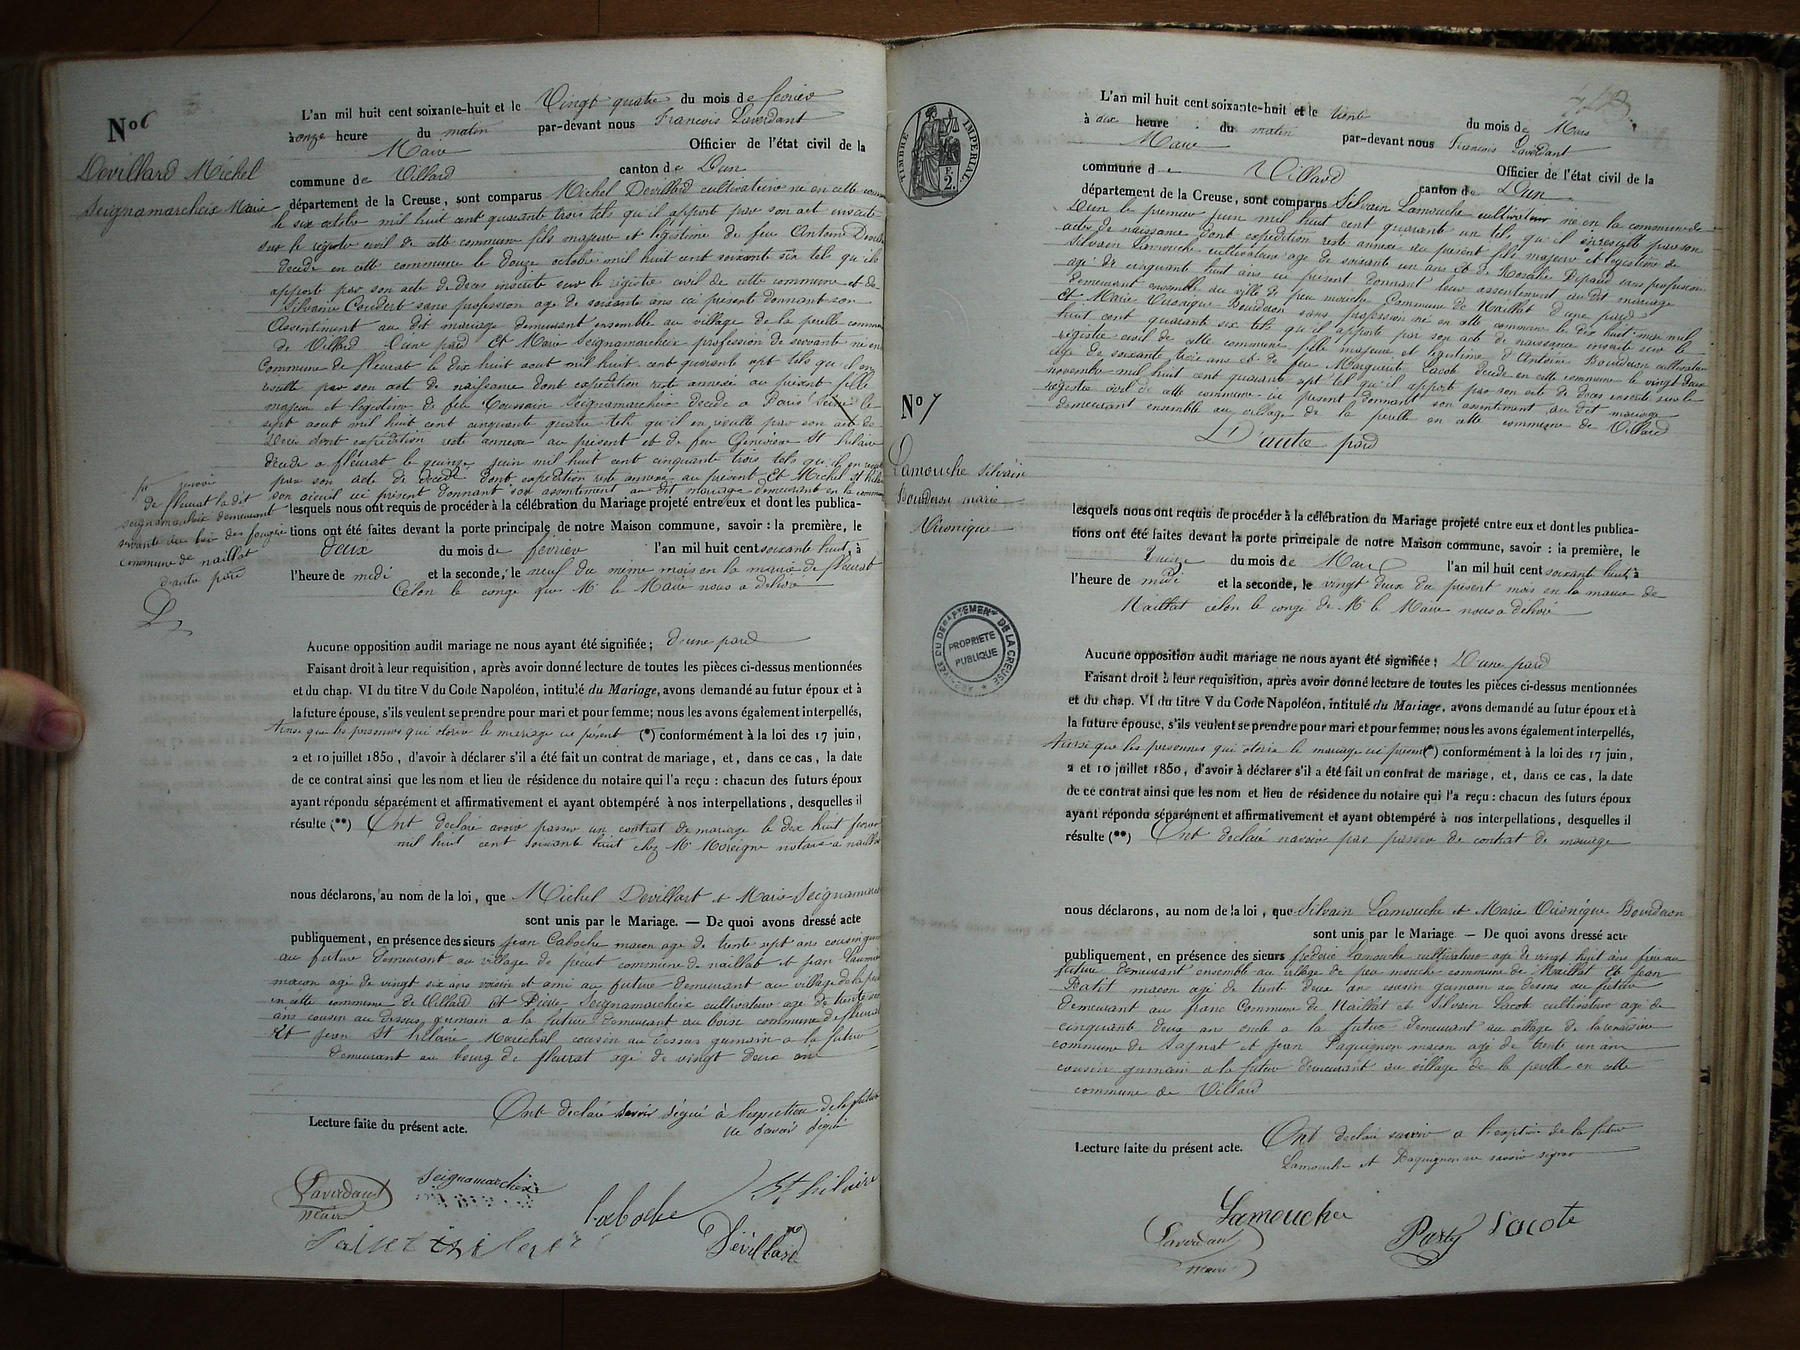 No 6
Devillard Michel
Seignamarcheix Marie
L'an mil huit cent soixante-huit et le Vingt quatre du mois de fevrier
à onze heure du matin par-devant nous Francois Laverdant
Maire Officier de l'état civil de la
commune de Villard canton de Dun
département de la Creuse, sont comparus Michel Devillard cultivateur né en cette
le six octobre mil huit cent quarante trois tels qu'il apport par son act inscrite
sur le registre civil de cette commune fils majeur et legitime de feu Antoine
décédé en cette commune le douze octobre mil huit cent soixante six tels qu'il
apporte par son acte de deces inscrite sur le registre civil de cette commune et de
Silvaine Coudert sans profession age de soixante ans ici presente donnant son
Assentiment au dit mariage demeurant ensemble au village de la perelle commune
de Villard d'une pard Et Marie Seignamarcheix profession de servante né en
Commune de fleurat le dix huit aout mil huit cent quarante sept tels qu'il en
resulte par son act de naissance dont expedition reste annexée au présent fille
majeur et legitime de feu Toussain Seignamarcheix decede a Paris Seine le
sept aout mil huit cent cinquante quatre tels qu'il en resulte par son act de
Deces dont expedition reste annexée au présent et de feu Genevieve St hilaire
décédé a fleurat le quinze juin mil huit cent cinquante trois tels qu'il en
par son acte de decede dont expedition reste annexé au present Et Michel St
son aieuil ici présent donnant son assentiment au dit mariage demeurant en la commune
renvoi
de fleurat la dit
seignamarcheix demeurant
servante au bois des
commune de naillat
d'autre pard
lesquels nous ont requis de procéder à la célébration du Mariage projeté entre eux et dont les publica-
tions ont été faites devant la porte principale de notre Maison commune, savoir : la première, le
deux du mois de fevrier l'an mil huit cent soixante huit, à
l'heure de midi et la seconde, le neuf du meme mois en la mairie de fleurat
Célon le congé que Mr le Maire nous a délivré
Aucune opposition audit mariage ne nous ayant été signifiée ; d'une pard
Faisant droit à leur requisition, après avoir donné lecture de toutes les pièces ci-dessus mentionnées
et du chap. VI du titre V du Code Napoléon, intitulé du Mariage, avons demandé au futur époux et à
la future épouse, s'ils veulent se prendre pour mari et pour femme; nous les avons également interpellés,
Ainsi que les personnes qui otorise le mariage ici présent (*) conformément à la loi des 17 juin,
2 et 10 juillet 1850, d'avoir à déclarer s'il a été fait un contrat de mariage, et, dans ce cas, la date
de ce contrat ainsi que les nom et lieu de résidence du notaire qui l'a reçu : chacun des futurs époux
ayant répondu séparément et affirmativement et ayant obtempéré à nos interpellations, desquelles il
résulte (**) Ont declaré avoir passer un contrat de mariage le dix huit fevrier
mil huit cent soixante huit chez Mr Moreigne notaire a naillat
nous déclarons, au nom de la loi, que Michel Devillart et Marie
sont unis par le Mariage. — De quoi avons dressé acte
publiquement, en présence des sieurs Jean Caboche macon age de trente sept ans cousin
au future demeurant au village de commune de naillat et jean
macon age de vingt six ans voisin et ami au future demeurant au village de la
en cette commune de Villard Et Pierre Seignamarcheix cultivateur age de trente
ans cousin au dessus germain a la future demeurant au boise commune de fleurat
Et jean St hilaire Marechal cousin au dessus germain a la future
demeurant au bourg de fleurat age de vingt deux ans
Lecture faite du présent acte. Ont declaré savoir signé à l'exception de la future
ne savoir signé
Laverdant
maire
Seignamarcheix
Caboche
St hilaire
Devillard
TIMBRE IMPERIAL
F.
2.
No 7
Lamouche Silvain
Bourderon marie
Véronique
ARCHIVES DU DEPARTEMENT DE LA CREUSE
PROPRIETE
PUBLIQUE
L'an mil huit cent soixante-huit et le trente du mois de Mars
à dix heure du matin par-devant nous Francois Laverdant
Maire Officier de l'état civil de la
commune de Villard canton de Dun
département de la Creuse, sont comparus Silvain Lamouche cultivateur né en la commune de
Dun le premier juin mil huit cent quarante un tels qu'il en resulte par son
acte de naissance dont expedition reste annexée au présent fils majeur et legitime de
Silvain Lamouche cultivateur age de soixante un ans et de Rosalie sans profession
age de cinquante huit ans ici présent donnant leur assentiment au dit mariage
demeurant ensemble au ville de peu mouche Commune de Naillat d'une pard
Et Marie Véronique Bourderon sans profession né en cette commune le dix huit mil
huit cent quarante six tels qu'il apporte par son acte de naissance inscrite sur le
registre civil de cette commune fille majeure et legitime d'Antoine Bourderon cultivateur
age de soixante treize ans et de feu Marguerite Lacob décedé en cette commune le vingt deux
novembre mil huit cent quarante sept tel qu'il apport par son acte de deces inscrite sur le
registre civil de cette commune ici present donnant son assentiment au dit mariage
demeurant ensemble au village de la perelle en cette commune de Villard
D'autre pard
lesquels nous ont requis de procéder à la célébration du Mariage projeté entre eux et dont les publica-
tions ont été faites devant la porte principale de notre Maison commune, savoir : la première, le
Quinze du mois de Mars l'an mil huit cent soixante huit, à
l'heure de midi et la seconde, le vingt deux du présent mois en la mairie de
Naillat célon le congé de Mr le Maire nous a délivré
Aucune opposition audit mariage ne nous ayant été signifiée ; D'une pard
Faisant droit à leur requisition, après avoir donné lecture de toutes les pièces ci-dessus mentionnées
et du chap. VI du titre V du Code Napoléon, intitulé du Mariage, avons demandé au futur époux et à
la future épouse, s'ils veulent se prendre pour mari et pour femme; nous les avons également interpellés,
Ainsi que les personnes qui otorise le mariage ici présent (*) conformément à la loi des 17 juin,
2 et 10 juillet 1850, d'avoir à déclarer s'il a été fait un contrat de mariage, et, dans ce cas, la date
de ce contrat ainsi que les nom et lieu de résidence du notaire qui l'a reçu : chacun des futurs époux
ayant répondu séparément et affirmativement et ayant obtempéré à nos interpellations, desquelles il
résulte (**) Ont declaré navoir pas passer de contrat de mariage
nous déclarons, au nom de la loi, que Silvain Lamouche et Marie Véronique Bourderon
sont unis par le Mariage — De quoi avons dressé acte
publiquement, en présence des sieurs frederic Lamouche cultivateur age de vingt huit ans frere au
future demeurant ensemble au village de peu mouche commune de Naillat Et Jean
macon age de trente deux ans cousin germain au dessus au future
demeurant au franc Commune de Naillat et Silvain Lacote cultivateur age de
cinquante deux ans oncle a la future demeurant au village de
commune de Sagnat et Jean Paquignon macon age de trente un ans
cousin germain a la future demeurant au village de la perelle en cette
commune de Villard
Lecture faite du présent acte. Ont declaré savoir a l'exeption de la future
Lamouche et Paquignon ne savoir signer
Lamouche
Laverdant
maire
Lacote